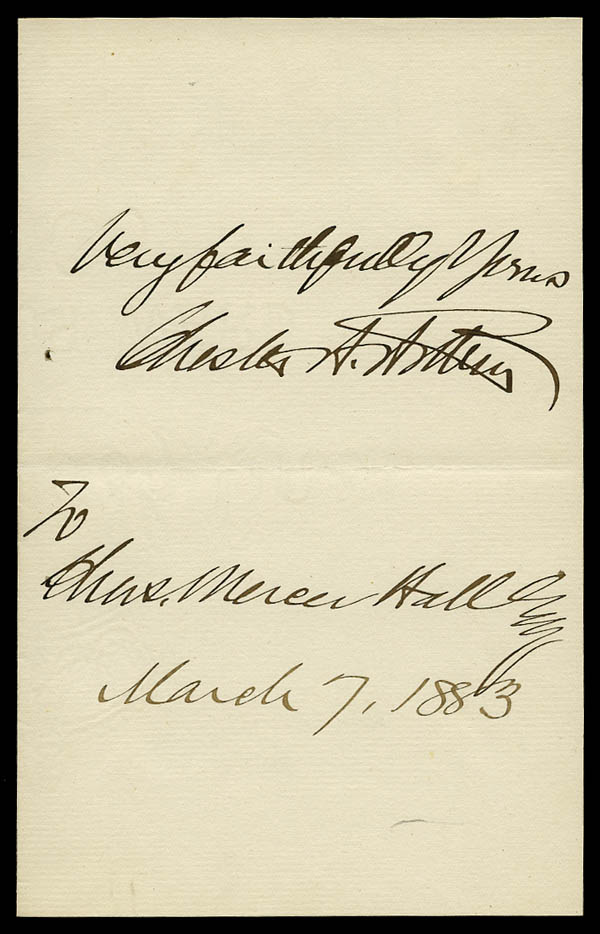 Very faithfully Yours
Chester A. Arthur
To
Chas. Mercer Hall Esq
March 7, 1883